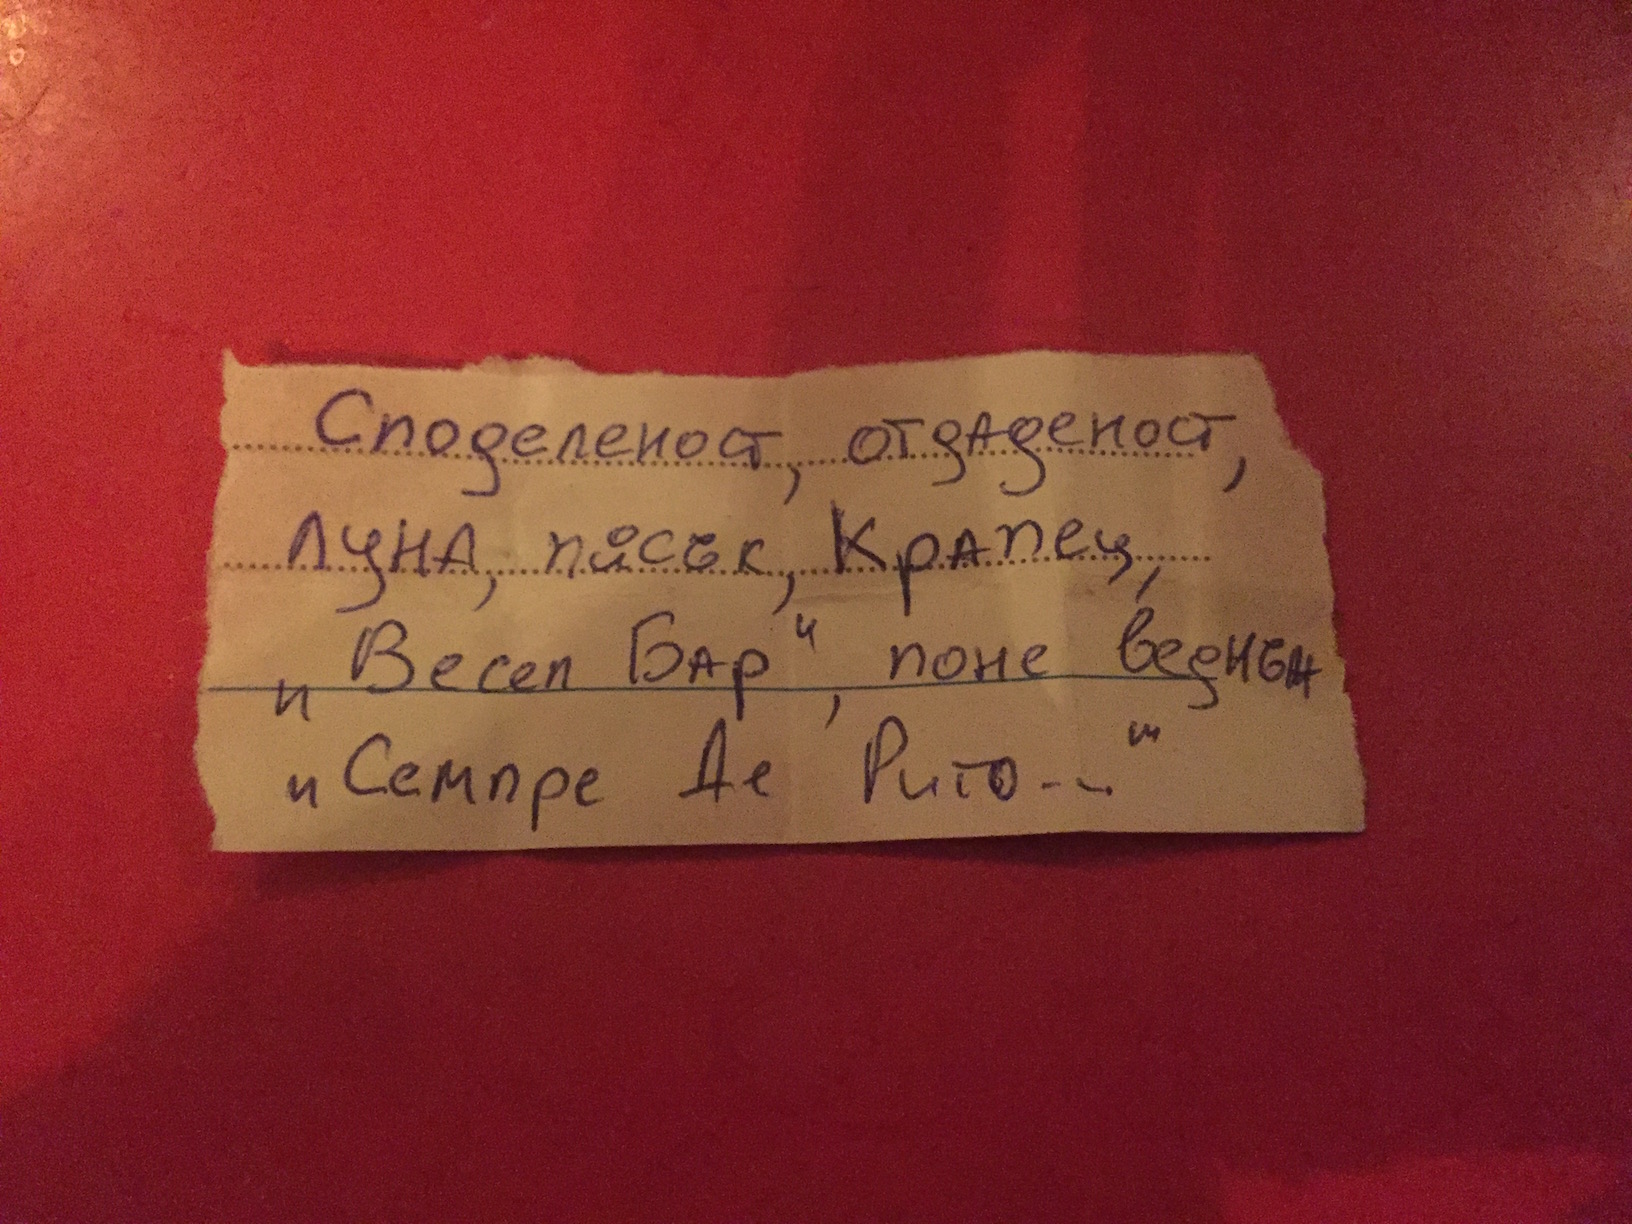 Споделеност, отдаденост,
Луна, пясък, Крапец,
„Весел Бар“, поне веднъж
„Семпре Де Рито...“